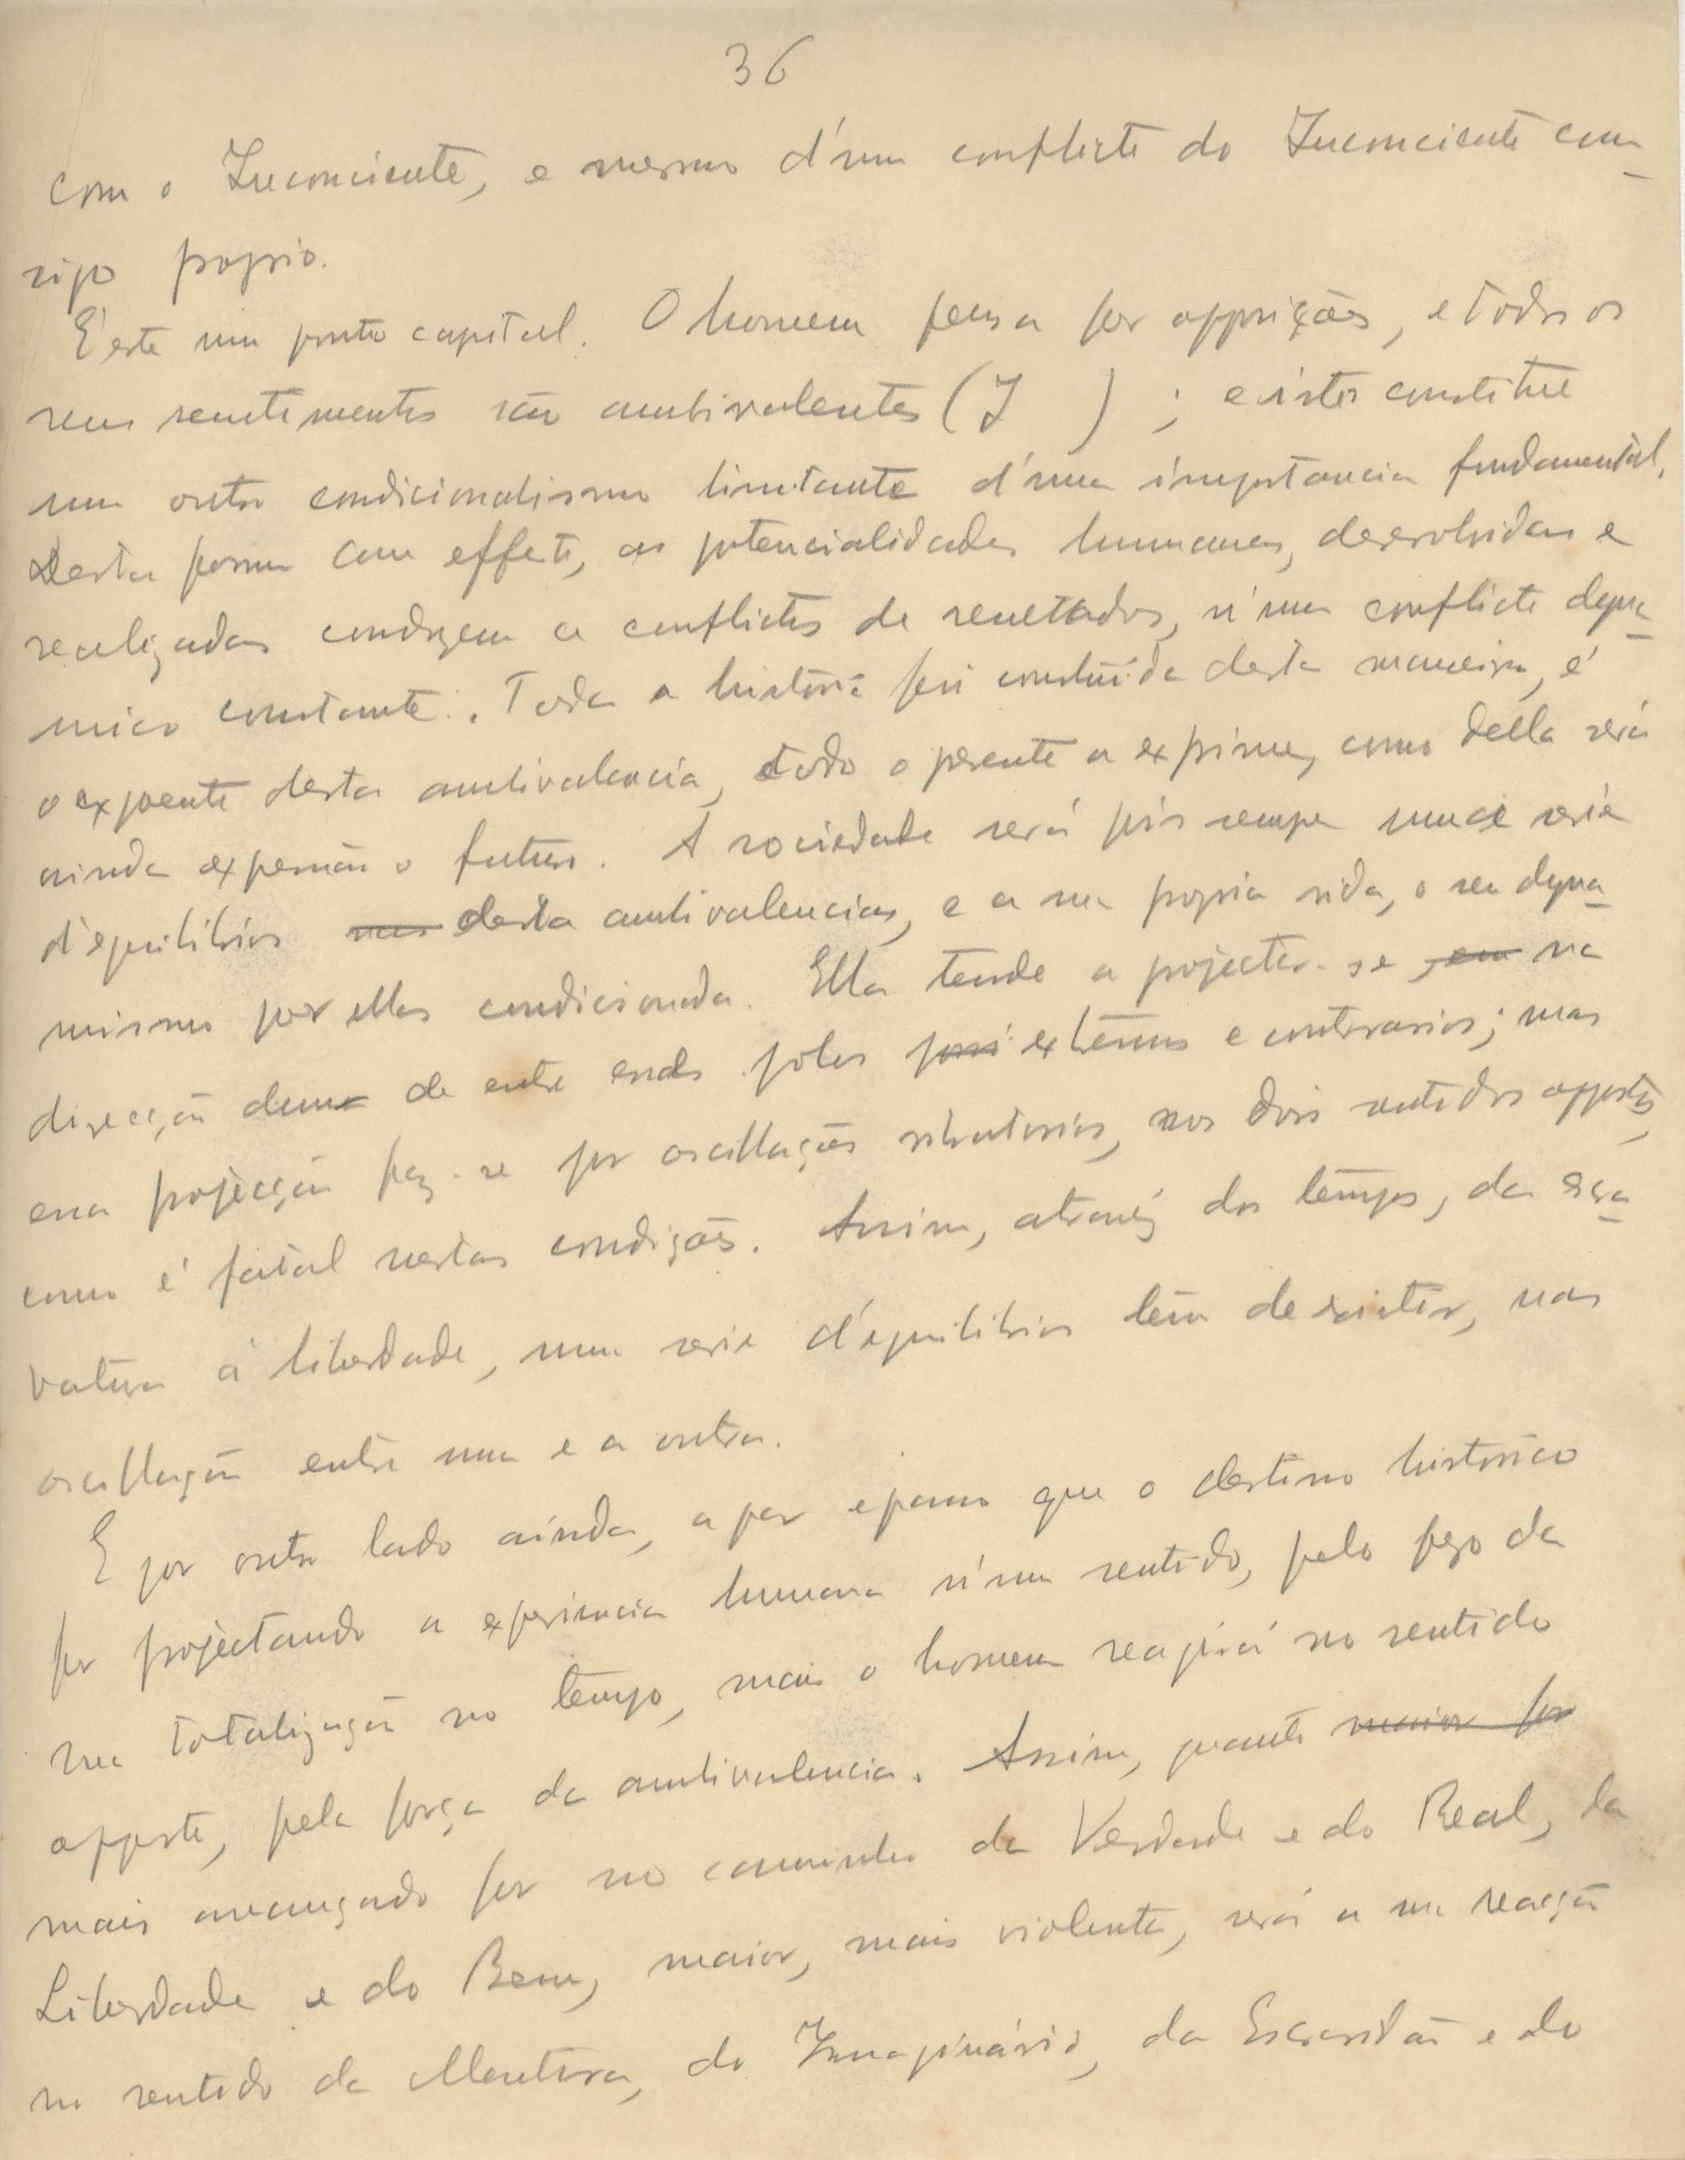 36
com o Inconciente, e mesmo d'um conflicto do Inconciente com_
sigo proprio.
É este um ponto capital. O homem pensa por opposições, e todos os
seus sentimentos são ambivalentes (I ) ; e isto constitue
um outro condicionalismo limitante d'uma importancia fundamental.
Desta forma com effeito, as potencialidades humanas, desenvolvidas e
realizadas conduzem a conflictos de resultados, n'um conflicto dyna_
mico constante. Toda a historia foi construida desta maneira, é
o expoente desta ambivalencia, e todo o presente a exprime, como della será
ainda expressão o futuro. A sociedade será pois sempre uma serie
d'equilibrios desta ambivalencias, e a sua propria vida, o seu dyna_
mismo por ellas condicionada. Ella tende a projectar-se na
direcção de entre esses polos extremos e contrarios; mas
essa projecção faz-se por oscillações vibratorias, nos dois sentidos oppostos,
como é fatal nestas condições. Assim, atravéz dos tempos, da escra_
vatura á liberdade, uma serie d'equilibrios têm de existir, nas
oscillação entre uma e a outra.
E por outro lado ainda, a par e passo que o destino historico
for projectando a experiencia humana n'um sentido, pelo peso da
sua totalização no tempo, mais o homem reagirá no sentido
opposto, pela força da ambivalencia. Assim, quanto maior for
mais avançado for no caminho da Verdade e do Real, da
Liberdade e do Bem, maior, mais violenta, será a sua reacção
no sentido da Mentira, do Imaginário, da Escravidão e do